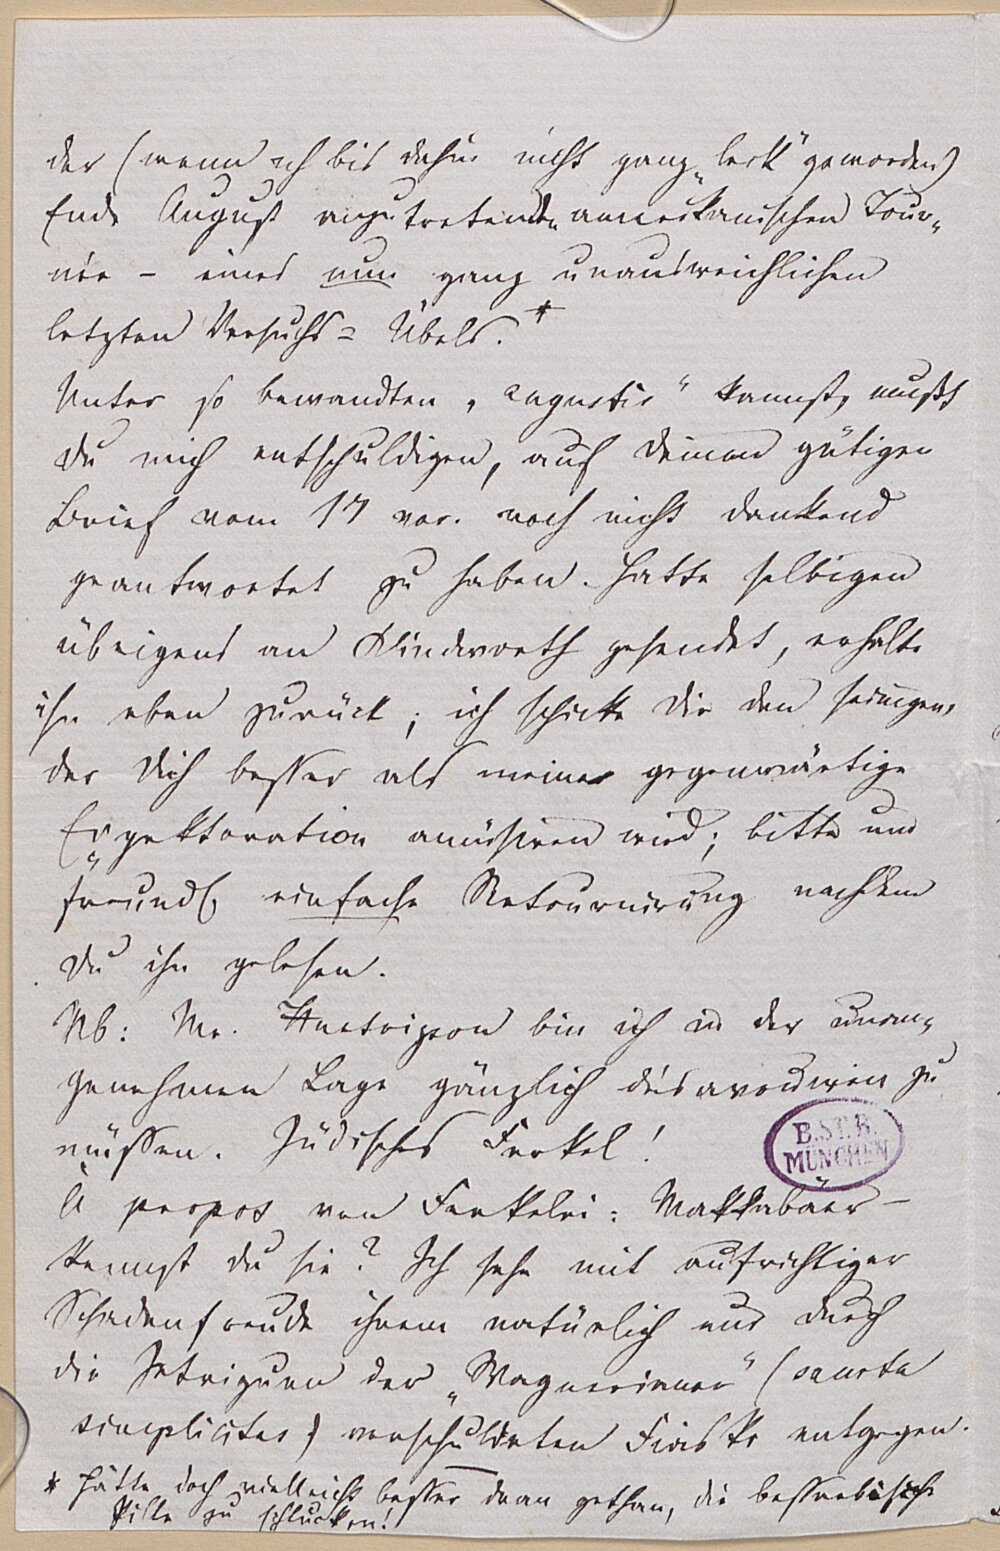 der (wenn ich bis dahin nicht ganz „leck“ geworden)
Ende August anzutretenden amerikanischen Tour-
née – eines nun ganz unausweichlichen
letzten Versuchs-Übels.*
Unter so bewandten „angustiis“ kannst, mußt
Du mich entschuldigen, auf Deinen gütigen
Brief vom 17 vor. noch nicht dankend
geantwortet zu haben. Hatte selbigen
übrigens an Klindworth gesendet, erhalte
ihn eben zurück; ich schicke Dir den seinigen,
der Dich besser als meine gegenwärtige
Expektoration amüsiren wird; bitte um
freundl. einfache Retournirung nachdem
Du ihn gelesen.
Nb: Mr. bin ich in der unan-
genehmen Lage gänzlich désavouiren zu
müssen. Jüdisches Ferkel!
B.ST.B.
MÜNCHEN
À propos von Ferkelei: Makkabäer –
kennst Du sie? Ich sehe mit aufrichtiger
Schadenfreude ihrem natürlich nur durch
die Intriguen der „Wagnerianer“ (sancta
simplicitas) verschuldeten Fiasko entgegen.
* Hätte doch vielleicht besser dran gethan, die
Pille zu schlucken!